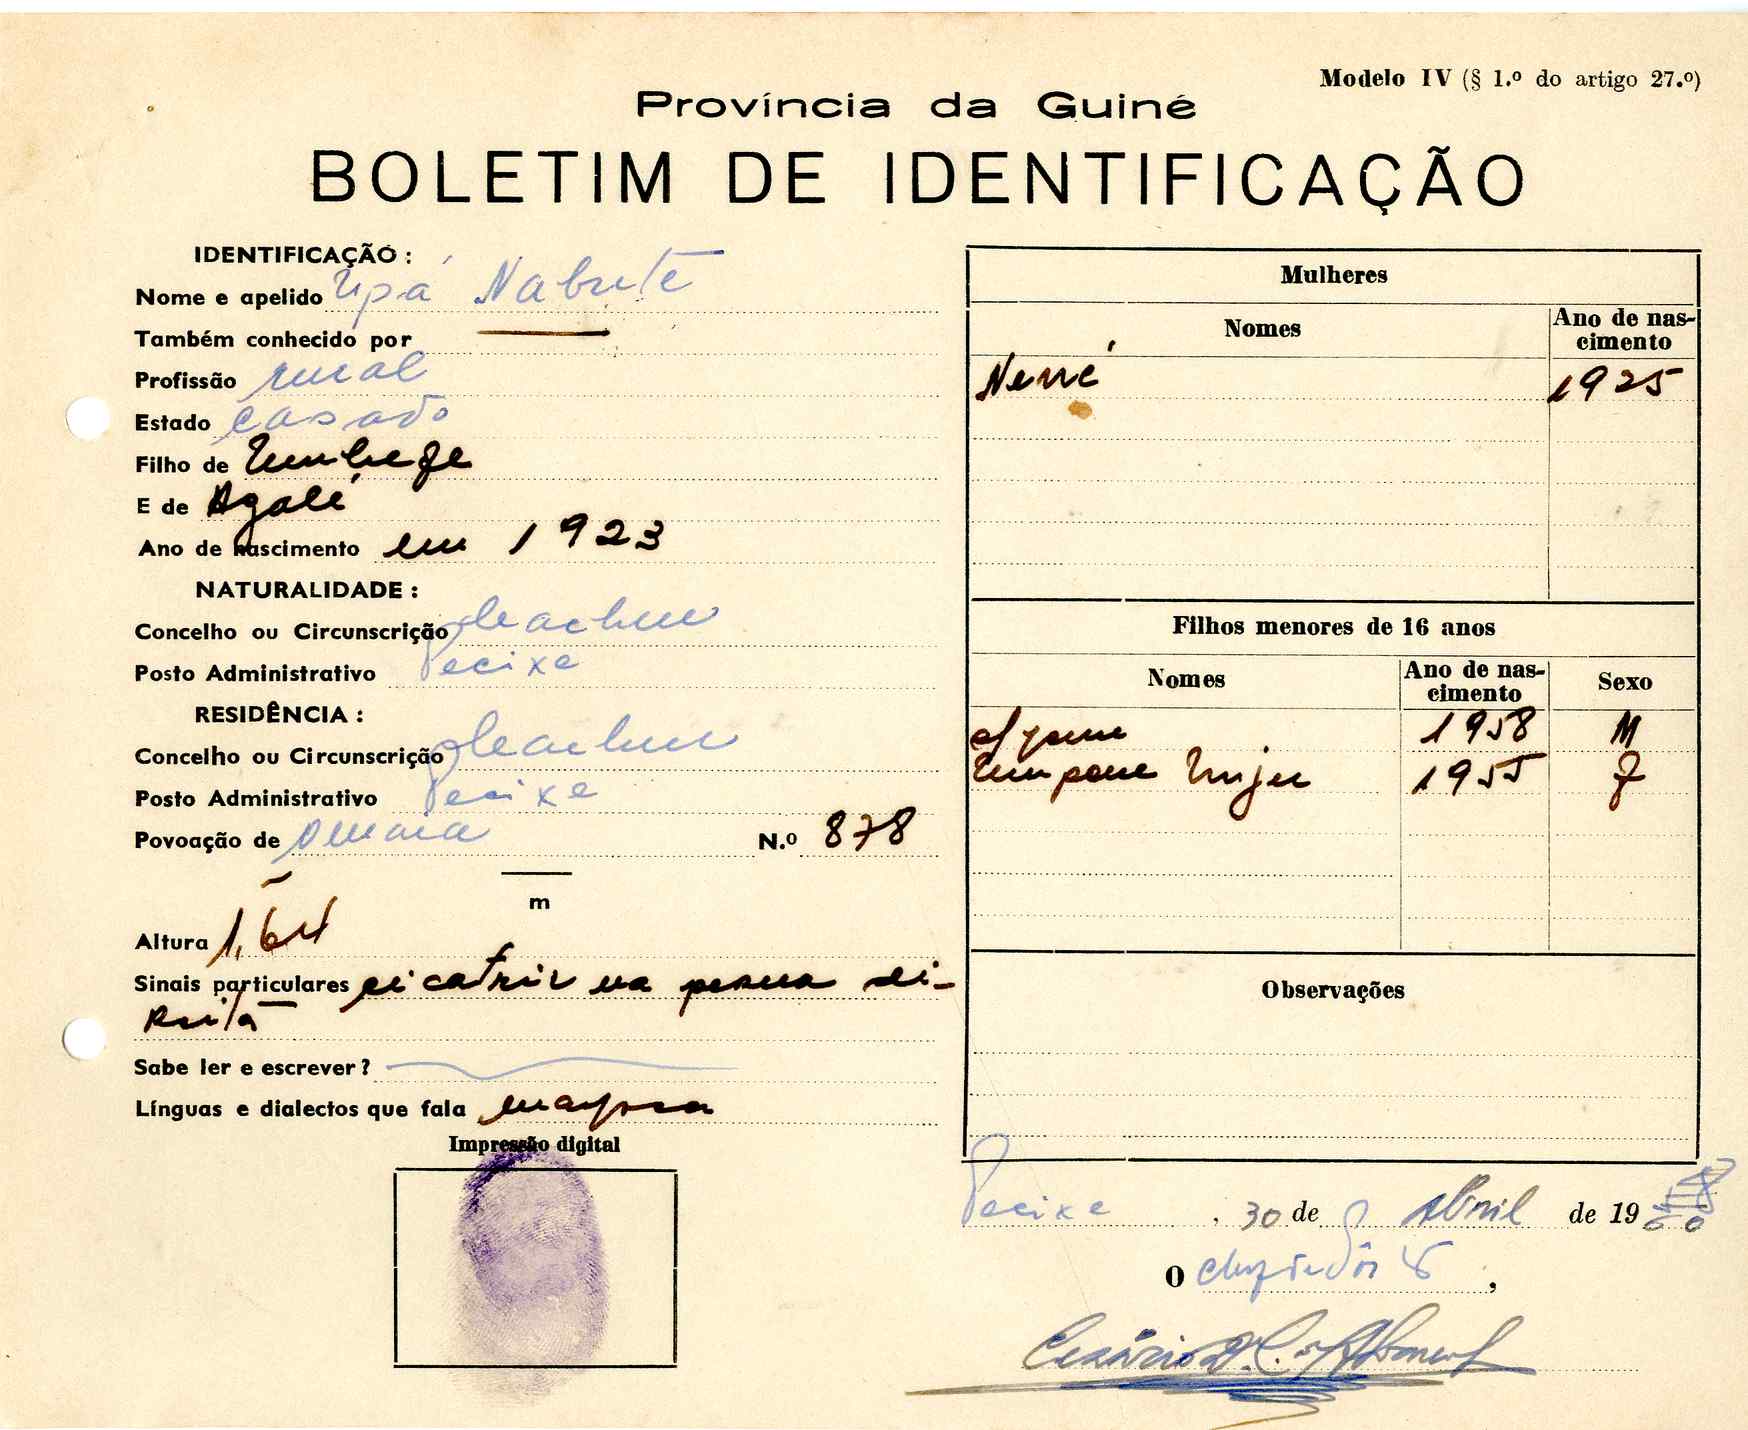 Modelo IV (§ 1.º do artigo 27.º)
Província da Guiné
BOLETIM DE IDENTIFICAÇÃO
IDENTIFICAÇÃO :
Nome e apelido Upá Nabuté
Também conhecido por —
Profissão rural
Estado casado
Filho de
E de Agalé
Ano de nascimento em 1923
NATURALIDADE :
Concelho ou Circunscrição
Posto Administrativo Pecixe
RESIDÊNCIA :
Concelho ou Circunscrição
Posto Administrativo Pecixe
Povoação de N.º 878
m
Altura 1,64
Sinais particulares cicatriz na perna di-
reita
Sabe ler e escrever?
Línguas e dialectos que fala
Impressão digital
Mulheres
Nomes Ano de nas-
cimento
1925
Filhos menores de 16 anos
Nomes Ano de nas-
cimento Sexo
1958 M
1955 F
Observações
Pecixe, 30 de Abril de 1960
O
,